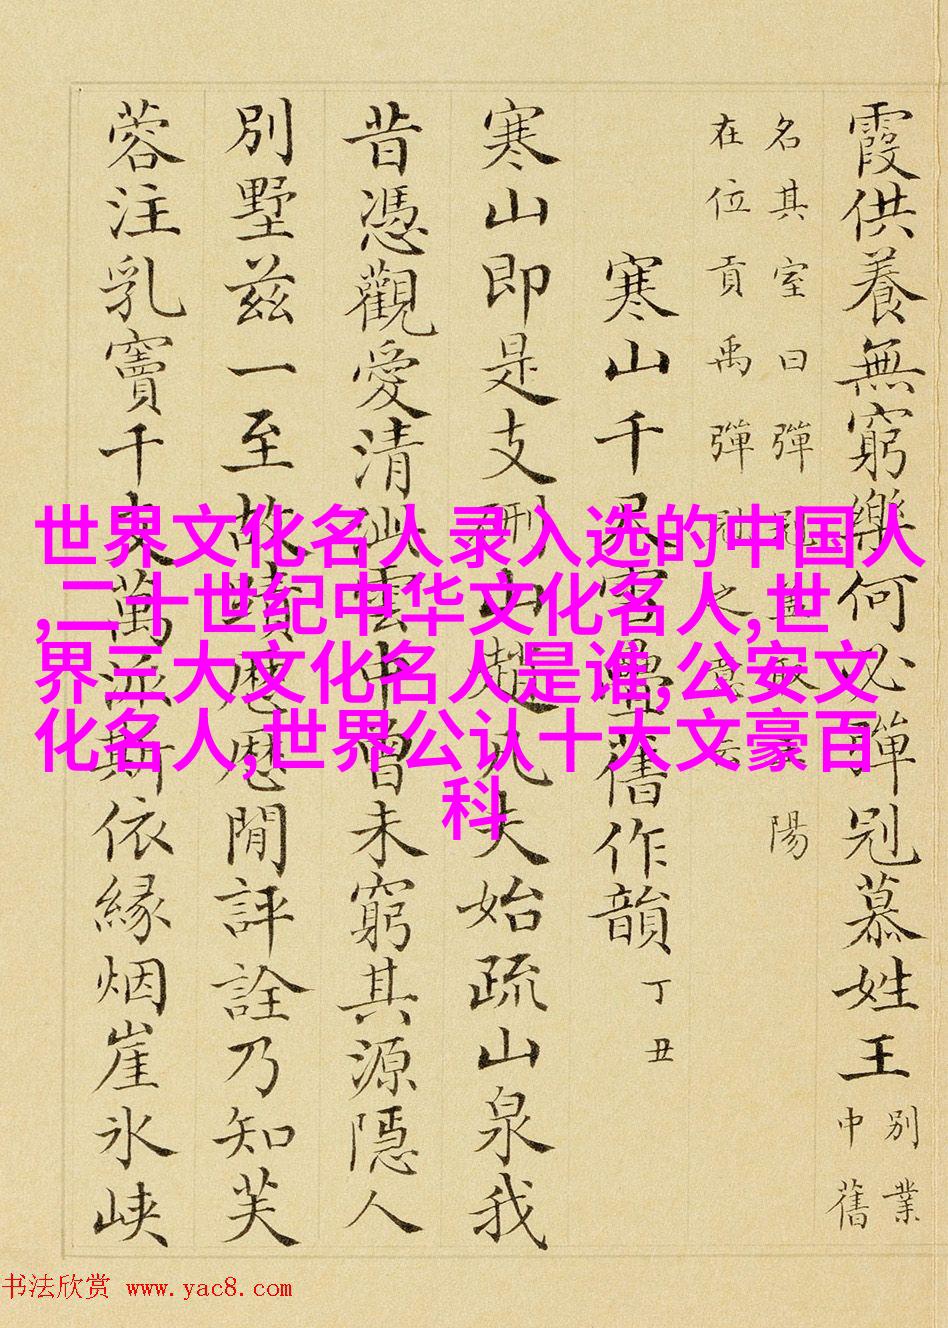 霞供養無窮樂何必彈冠慕姓王
別業
中舊
名其室曰彈冠陽
在位貢禹彈冠之意
寒山千疊舊作韻 丁丑
寒山即是支硎山趙凡夫始疏山泉我
昔憑觀愛清泚雲中曾未窮其源隱人
別墅茲一至故蹟歷歷閒評詮乃知芙
蓉注乳竇千支萬派斯依緣烟崖氷峽
世界文化名人录入选的中国人
,二十世纪中华文化名人,世
界三大文化名人是谁,公安文
化名人,世界公认十大文豪百
科
书法欣赏 www.yac8.com